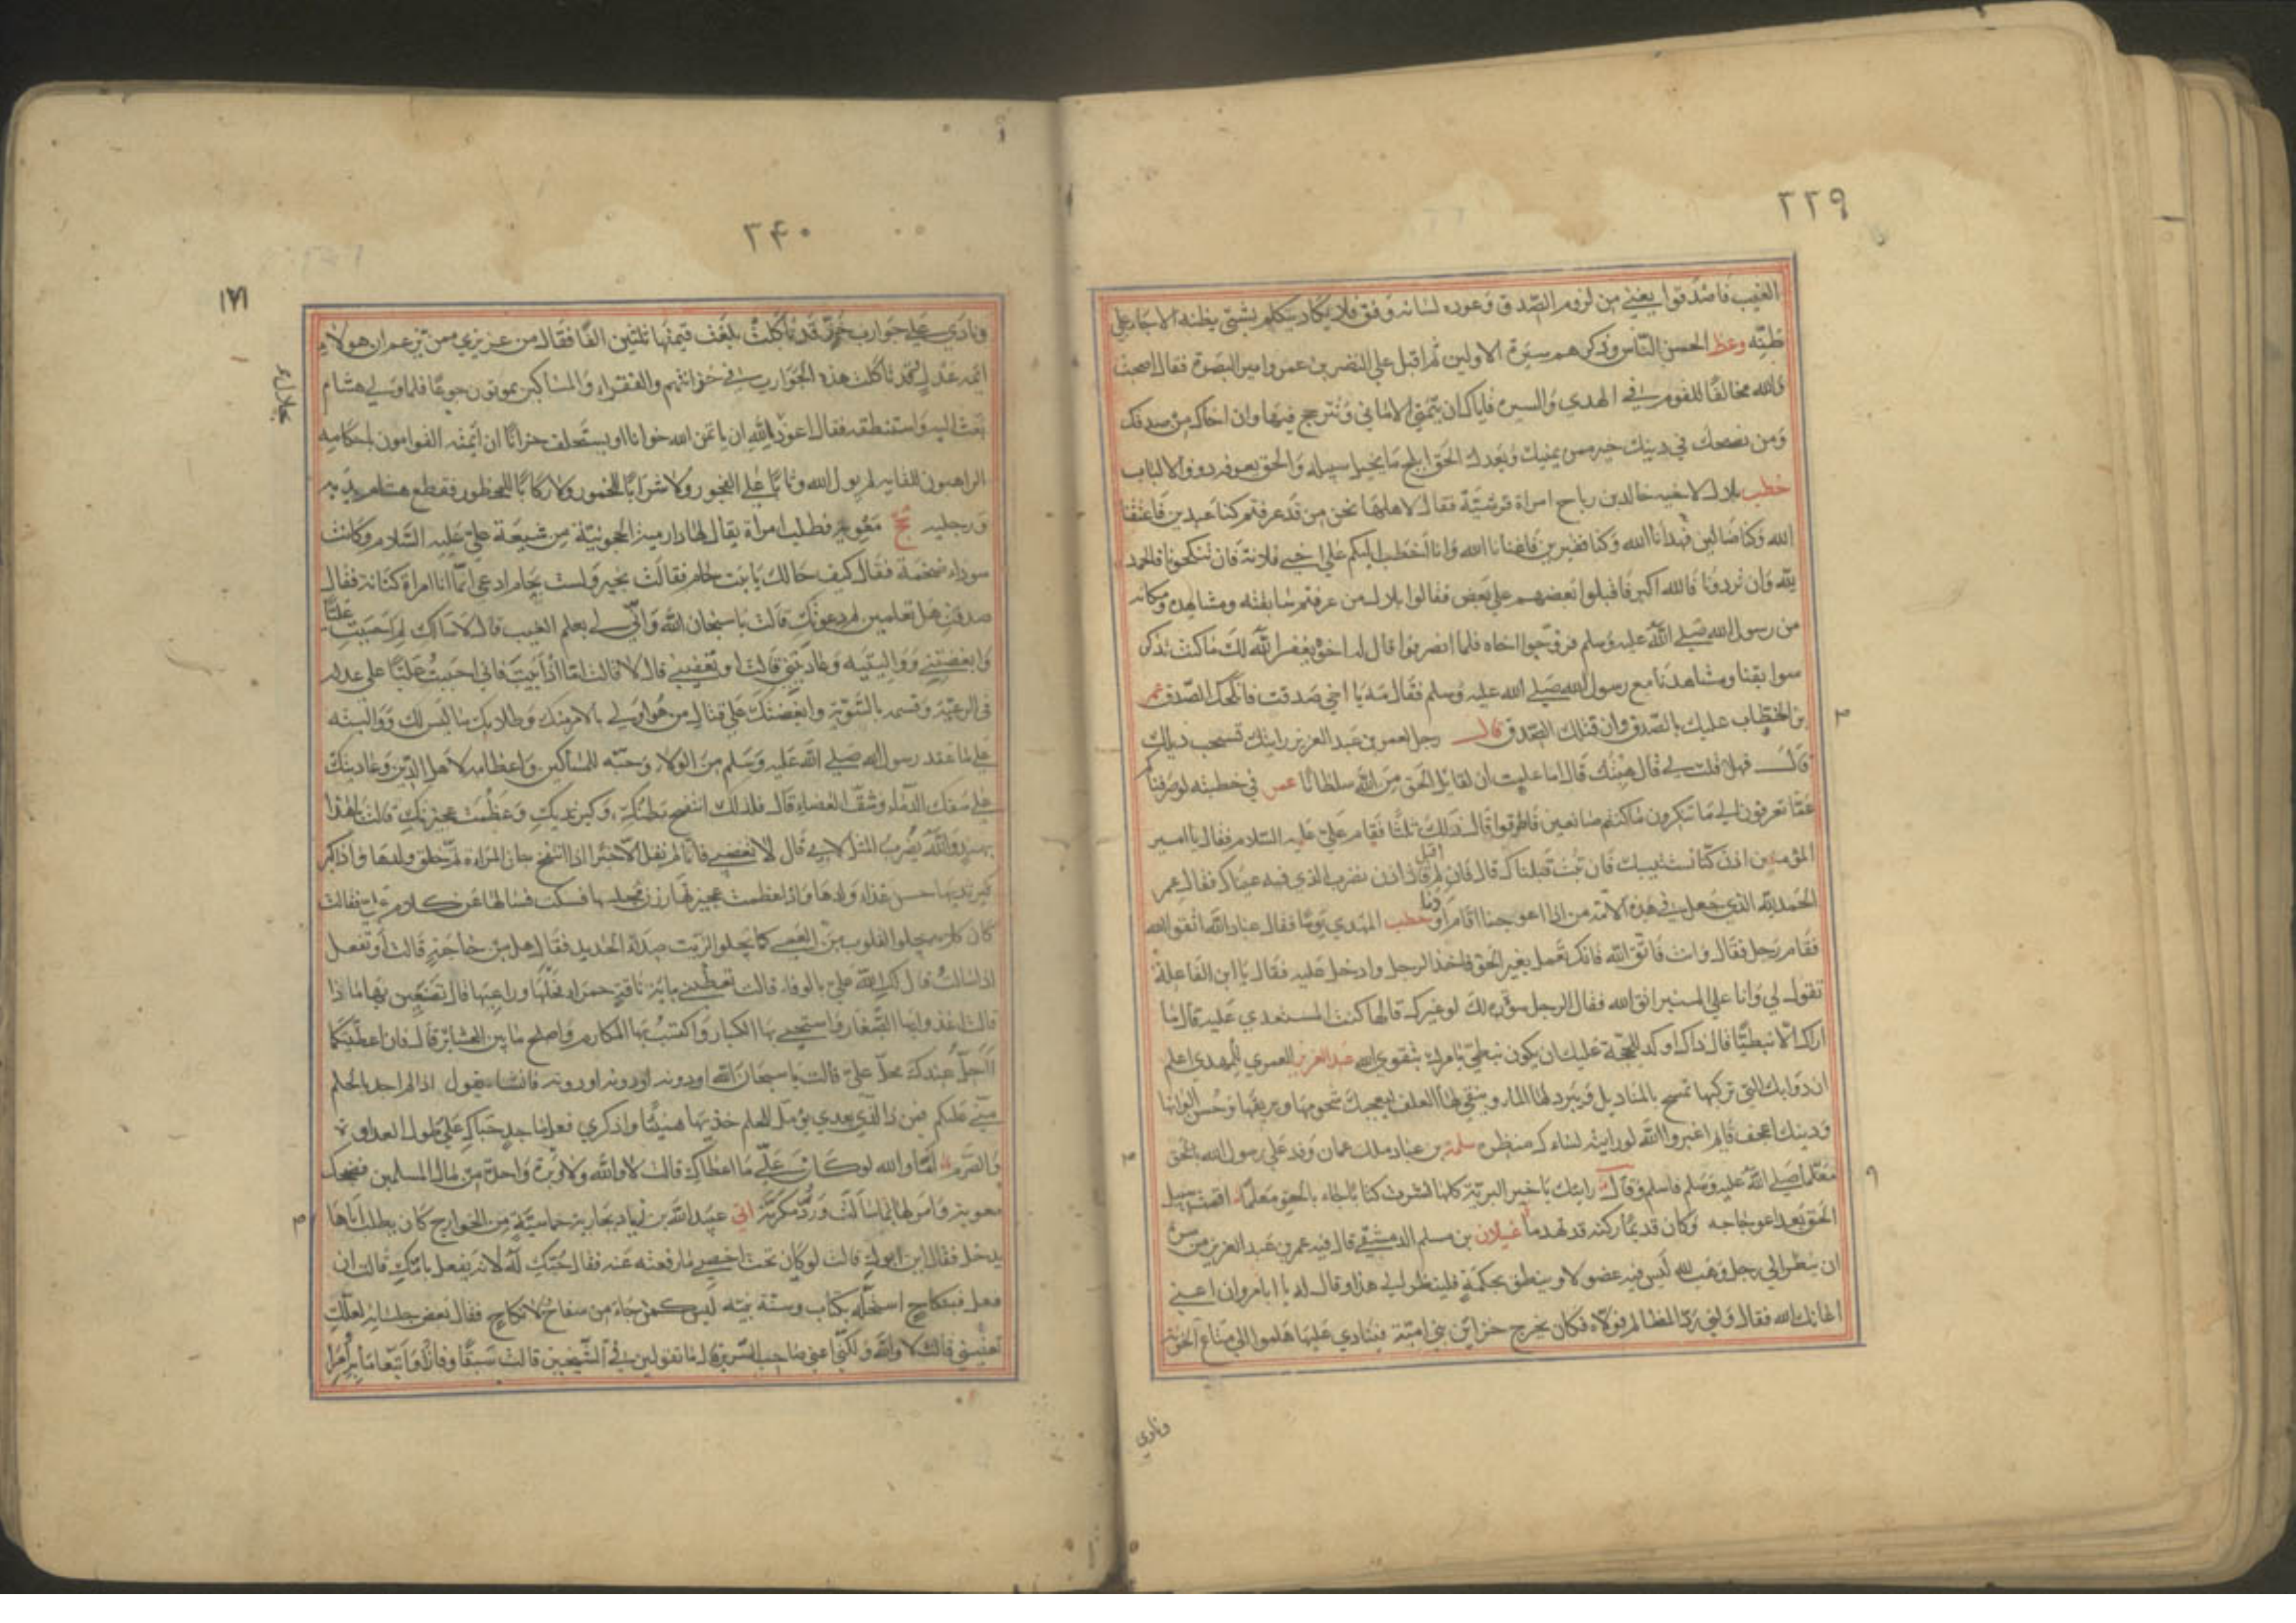 ٣٣٩
الغيب فاصدقوا يعني من لزوم الصدق وعوده لسانه وفق فلا يكاد يتكلم بشئ يظنه الا جاء علي
ظنه وعظ الحسن الناس وذكرهم سيرة الاولين ثم اقبل علي النضر بن عمرو امير البصرة فقال اصبحت
والله مخالفا للقوم في الهدي والسيرة فاياك ان تتمني الاماني وتترجح فيها وان اخاك من صدقك
ومن نصحك في دينك خير ممن يمنيك وبعدك الحق ابلج ما يخيل سبيله والحق يعرفه ذوو الالباب
خطب بلال لاخيه خالد بن رباح امراة قرشية فقال لاهلها نحن من قد عرفتم كنا عبدين فاعتقنا
الله وكنا ضالين فهدانا الله وكنا فقيرين فاغنانا الله وانا اخطب اليكم علي اخي فلانة فان تنكحونا فالحمد
لله وان تردونا فالله اكبر فاقبلوا بعضهم علي بعض فقالوا بلال من عرفتم سابقته ومشاهده ومكانه
من رسول الله صلي الله عليه وسلم فزوجوا اخاه فلما انصرفوا قال له اخوه يغفر الله لك ما كنت تذكر
سوابقنا ومشاهدنا مع رسول الله صلي الله عليه وسلم فقال مه يا اخي صدقت فانكحك الصدق عمر
بن الخطاب عليك بالصدق وان قتلك الصدق قال رجل لعمر بن عبد العزيز رايتك تسحب ذيلك
قال فهل قلت لي قال هبتك قال اما علمت ان لقايل الحق من الله سلطانا عمر في خطبته لو صرفناكم
عما تعرفون الي ما تنكرون ما كنتم صانعين فاطرقوا قال ذلك ثلثا فقام علي عليه السلام فقال يا امير
المؤمنين اذن كنا نستتيبك فان تبت قبلناك قال فان لم اقبل قال اذن نضرب الذي فيه عيناك فقال عمر
الحمد لله الذي جعل في هذه الامة من اذا اعوججنا اقام اودنا خطب المهدي يوما فقال عباد الله اتقوا الله
فقام رجل فقال وانت فاتق الله فانك تعمل بغير الحق فاخذ الرجل وادخل عليه فقال يا ابن الفاعلة
تقول لي وانا علي المنبر اتق الله فقال الرجل سوءة لك لو غيرك قالها كنت المستعدي عليه قال ما
اراك الا نبطيا قال ذاك اوكد للحجة عليك ان يكون نبطي يامرك بتقوي الله عبد العزيز العمري للمهدي اعلم
ان دوابك التي تركبها تمسح بالمناديل ويبرد لها الماء وينقي لها العلف يعجبك شحومها وبريقها وحسن الوانها
ودينك اعجف قاتم اغبر والله لو رايته لساءك منظره سلمة بن عباد ملك عمان وفد علي رسول الله بالحق
معلما صلي الله عليه وسلم فاسلم وقال رايتك يا خير البرية كلها نشرت كتابا جاء بالحق معلما اقمت سبيل
الحق بعد اعوجاجه وكان قديما ركنه قد تهدما غيلان بن مسلم الدمشقي قال فيه عمر بن عبد العزيز من سره
ان ينظر الي رجل وهب لله ليس فيه عضو الا وينطق بحكمة فلينظر الي هذا وقال له يا ابا مروان اعني
اعانك الله فقال ولني رد المظالم فولاه فكان يخرج خزاين بني امية فينادي عليها هلموا الي متاع الخونة
ونادي
٣٤٠
١٧١
ونادي علي جوارب خز قد تاكلت بلغت قيمتها ثلثين الفا فقال من عزيزي ممن يزعم ان هولاء
ائمة عدل لقد تاكلت هذه الجوارب في خزائنهم والفقراء والمساكين يموتون جوعا فلما ولي هشام
بعث اليه واستنطقه فقال اعوذ بالله ان ياتمن الله خوانا او يستخلف خزانا ان ائمته القوامون باحكامه
الراهبون لمقامه لم يول الله وثابا علي الفجور ولا شرابا للخمور ولا ركابا للمحظور فقطع هشام يديه
ورجليه حج معوية فطلب امراة يقال لها دارمية الحجونية من شيعة علي عليه السلام وكانت
سوداء ضخمة فقال كيف حالك يا بنت حام فقالت بخير ولست بحام ادعي انما انا امراة كنانة فقال
صدقت هل تعلمين لم دعوتك قالت يا سبحان الله واني لي بعلم الغيب قال لاسالك لم احببت عليا
وابغضتني وواليتيه وعاديتني قالت او تعفيني قال لا قالت اما اذ ابيت فاني احببت عليا علي عدله
في الرعية وقسمه بالسوية وابغضتك علي قتال من هو اولي بالامر منك وطلابك ما ليس لك وواليته
علي ما عقد رسول الله صلي الله عليه وسلم من الولاء وحبه للمساكين واعظامه لاهل الدين وعاديتك
علي سفك الدماء وشق العصا قال فلذلك انتفخ بطنك وكبر ثديك وعظمت عجيزتك قالت يا هذا
بهند والله يضرب المثل لا بي قال لا تغضبي فانا لم نقل الا خيرا اذا انتفخ بطن المراة تم خلق ولدها واذا كبر
كبر ثديها حسن غذاء ولدها واذا عظمت عجيزتها رزن مجلسها فسكت فسالها عن كلام علي فقالت
كان كلامه يجلو القلوب من العمي كما يجلو الزيت صداء الحديد فقال هل من حاجة قالت او تفعل
اذا سالت قال لك الله علي بالوفاء قالت تعطيني ماية ناقة حمراء فحلها وراعيها قال تصنعين بها ماذا
قالت اغذو بها الصغار واستحيي بها الكبار واكتسب بها المكارم واصلح ما بين العشائر قال فان اعطيتكها
ااحل عندك محل علي قالت يا سبحان الله او دونه او دونه او دونه فانشا يقول اذا لم اجد بالحلم
مني عليكم فمن ذا الذي بعدي يؤمل للحلم خذيها هنيئا واذكري فعل ماجد حباك علي طول العداوة
والصرم اما والله لو كان علي ما اعطاك قالت لا والله ولا وبرة واحدة من مال المسلمين فضحك
معوية وامر لها بما سالت وردها مكرمة اتي عبيد الله بن زياد بجارية خماسية من الخوارج كان يطلب اباها